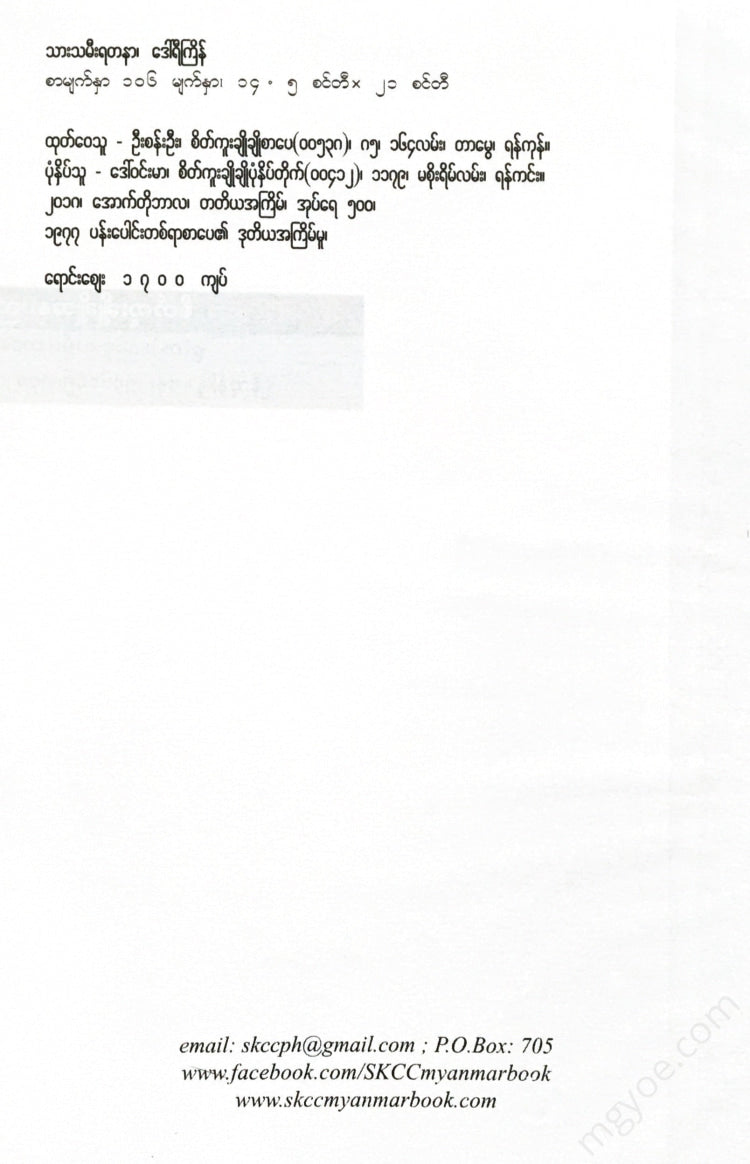 သားသမီးရတနာ၊ ဒေါ်ရီကြိန်
စာမျက်နှာ ၁၀၆ မျက်နှာ၊ ၁၄ . ၅ စင်တီ× ၂၁ စင်တီ
ထုတ်ဝေသူ - ဦးစန်းဦး၊ စိတ်ကူးချိုချိုစာပေ(၀၀၅၃၈)၊ ဂ၅၊ ၁၆၄လမ်း၊ တာမွေ၊ ရန်ကုန်။
ပုံနှိပ်သူ - ဒေါ်ဝင်းမာ၊ စိတ်ကူးချိုချိုပုံနှိပ်တိုက်(၀၀၄၁၂)၊ ၁၁၇၉၊ မစိုးရိမ်လမ်း၊ ရန်ကင်း။
၂၀၁၈၊ အောက်တိုဘာလ၊ တတိယအကြိမ်၊ အုပ်ရေ ၅၀၀၊
၁၉၇၇ ပန်းပေါင်းတစ်ရာစာပေ၏ ဒုတိယအကြိမ်မူ၊
ရောင်းဈေး ၁ ၇ ၀ ၀ ကျပ်
email: skccph@gmail.com ; P.O.Box: 705
www.facebook.com/SKCCmyanmarbook
www.skccmyanmarbook.com
mgyoe.com